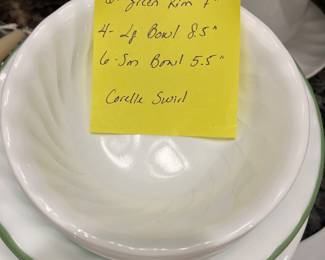 Green Rim 7"
4- Lg Bowl 8.5"
6-Sm Bowl 5.5"
Corelle Swirl